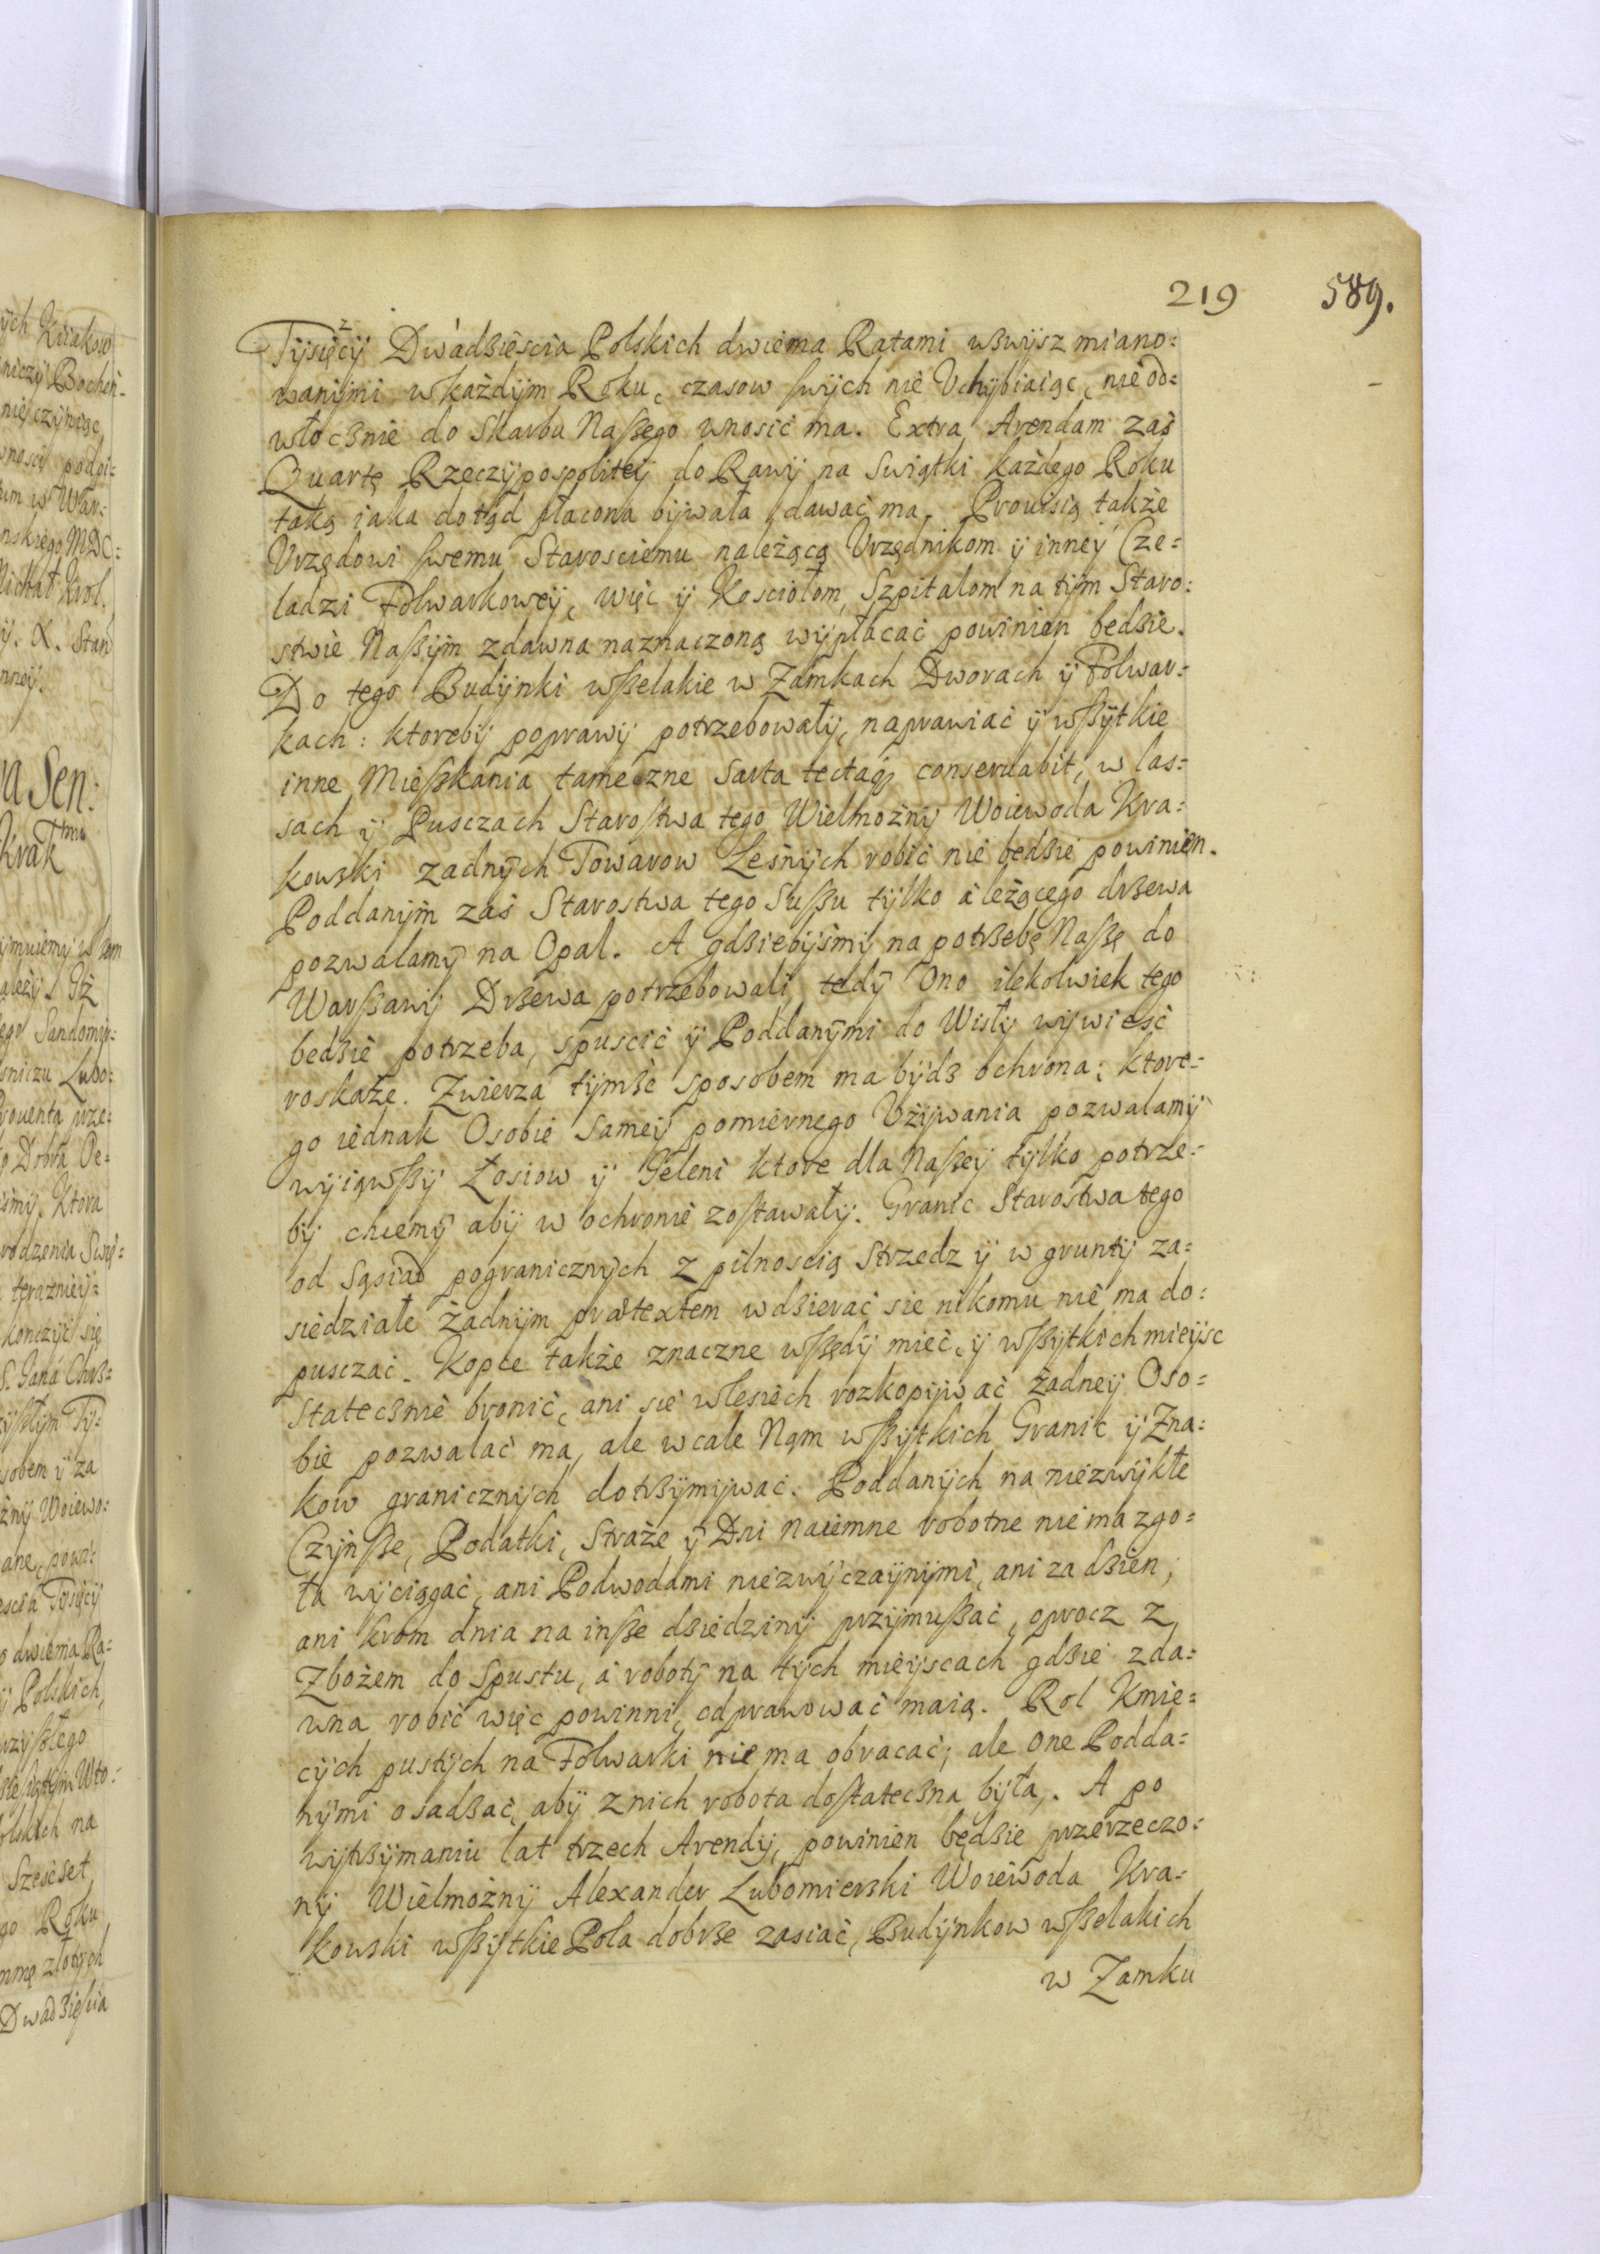 219 589.
Tysięcy Dwadzieścia Polskich dwiema Ratami wzwysz miano=
wanymi w każdym Roku, czasow swych nie Vchybiaiąc, nie od=
włocznie do Skarbu Naszego wnosić ma. Extra Arendam zaś
Quartę Rzeczypospolitey do Rawy na Swiątki każdego Roku
taką iaka dotąd płacona bywała dawać ma. Prowisią także
Vrzędowi swemu Starosciemu należącą Vrzędnikom y inney Cze=
ladzi Folwarkowey, więc y Kosciołom, Szpitalom na tym Staro=
stwie Naszym zdawna naznaczoną wypłacać powinien będzie.
Do tego Budynki wszelakie w Zamkach Dworach y Folwar=
kach: ktoreby poprawy potrzebowały, naprawiać y wszytkie
inne Mieszkania tameczne sarta tectaq; conseruabit, w las=
sach y Pusczach Starostwa tego Wielmożny Woiewoda Kra=
kowski zadnych Towarow Leśnych robić nie będzie powinien.
Poddanym zaś Starostwa tego Suszu tylko a leżącego drzewa
pozwalamy na Opal. A gdziebyśmy na potrzebę Naszę do
Warszawy Drzewa potrzebowali, tedy Ono ilekolwiek tego
będzie potrzeba, spuscić y Poddanymi do Wisły wywieść
roskaże. Zwierza tymże sposobem ma bydz ochrona; ktore=
go iednak Osobie samey pomiernego Vżywania pozwalamy
wyiąwszy Łosiow y Ieleni ktore dla Naszey tylko potrze=
by chcemy aby w ochronie zostawały. Granic Starostwa tego
od sąsiad pogranicznych z pilnoscią strzedz y w grunty za=
siedziałe żadnym prætextem wdzierać sie nikomu nie ma do=
pusczać. Kopce także znaczne wszędy mieć, y wszytkich mieysc
statecznie bronić, ani sie w lesiech rozkopywać żadney Oso=
bie pozwalać ma, ale wcale Nąm wszytkich Granic y Zna=
kow granicznych dotrzymywać. Poddanych na niezwykłe
Czynsze, Podatki, Straże y Dni naiemne robotne nie ma zgo=
ła wyciągać, ani Podwodami niezwyczaynymi, ani za dzien,
ani krom dnia na insze dziedziny przymuszać, oprocz z
Zbożem do Spustu, a roboty na tych mieyscach gdzie zda=
wna robić więc powinni, odprawować maią. Rol Kmie=
cych pustych na Folwarki nie ma obracać, ale one Podda=
nymi osadzać, aby z nich robota dostateczna była. A po
wytrzymaniu lat trzech Arendy, powinien będzie przerzeczo=
ny Wielmożny Alexander Lubomierski Woiewoda Kra=
kowski wszytkie Pola dobrze zasiać, Budynkow wszelakich
w Zamku